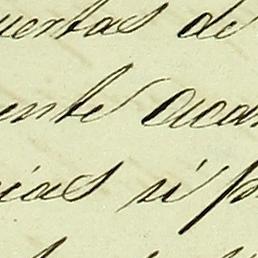 uertas de
ente aca
cias si p